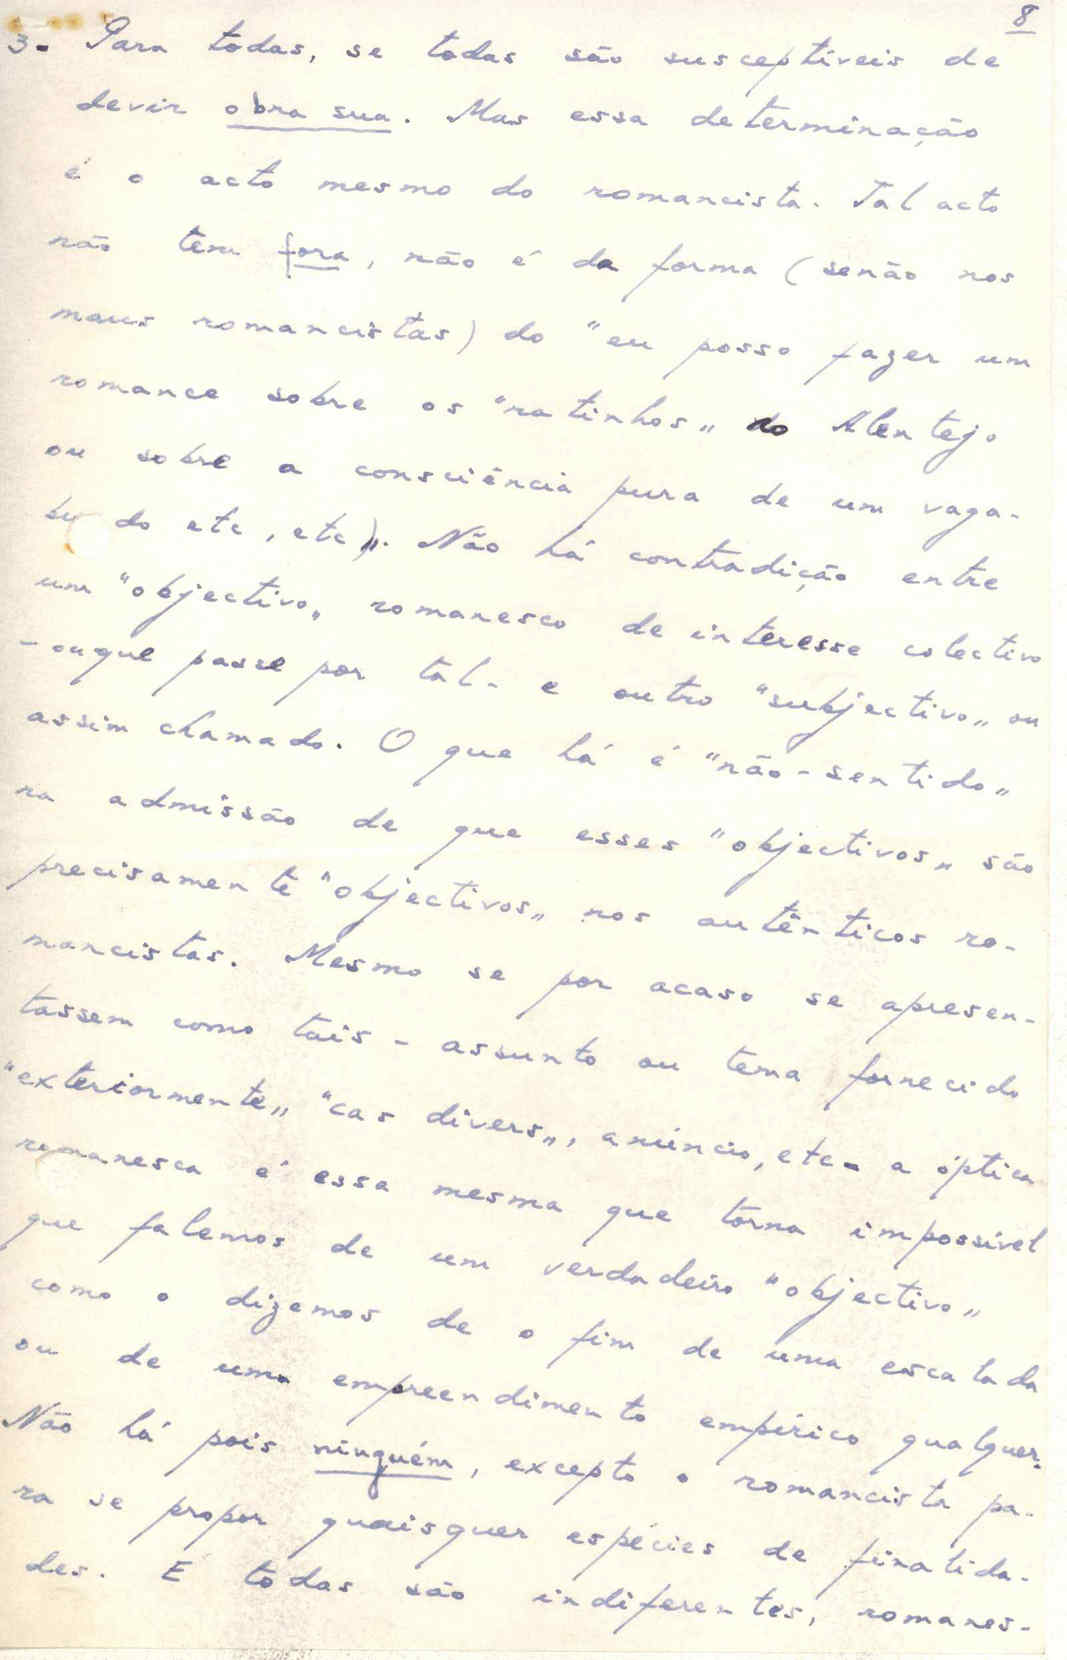 8
3- Para todas, se todas são susceptíveis de
devir obra sua. Mas essa determinação
é o acto mesmo do romancista. Tal acto
não tem fora, não é da forma (senão nos
maus romancistas) do "eu posso fazer um
romance sobre os "ratinhos" do Alentejo
ou sobre a consciência pura de um vaga-
bu do etc, etc)". Não há contradição entre
um "objectivo" romanesco de interesse colectivo
- ou que passe por tal - e outro "subjectivo" ou
assim chamado. O que há é "não-sentido"
na admissão de que esses "objectivos" são
precisamente "objectivos" nos autênticos ro-
mancistas. Mesmo se por acaso se apresen-
tassem como tais - assunto ou tema fornecido
"exteriormente" "cas divers", anúncio, etc - a óptica
romanesca é essa mesma que torna impossível
que falemos de um verdadeiro "objectivo"
como o dizemos de o fim de uma escalada
ou de um empreendimento empírico qualquer.
Não há pois ninguém, excepto o romancista pa-
ra se propor quaisquer espécies de finalida-
des. E todas são indiferentes, romanes-